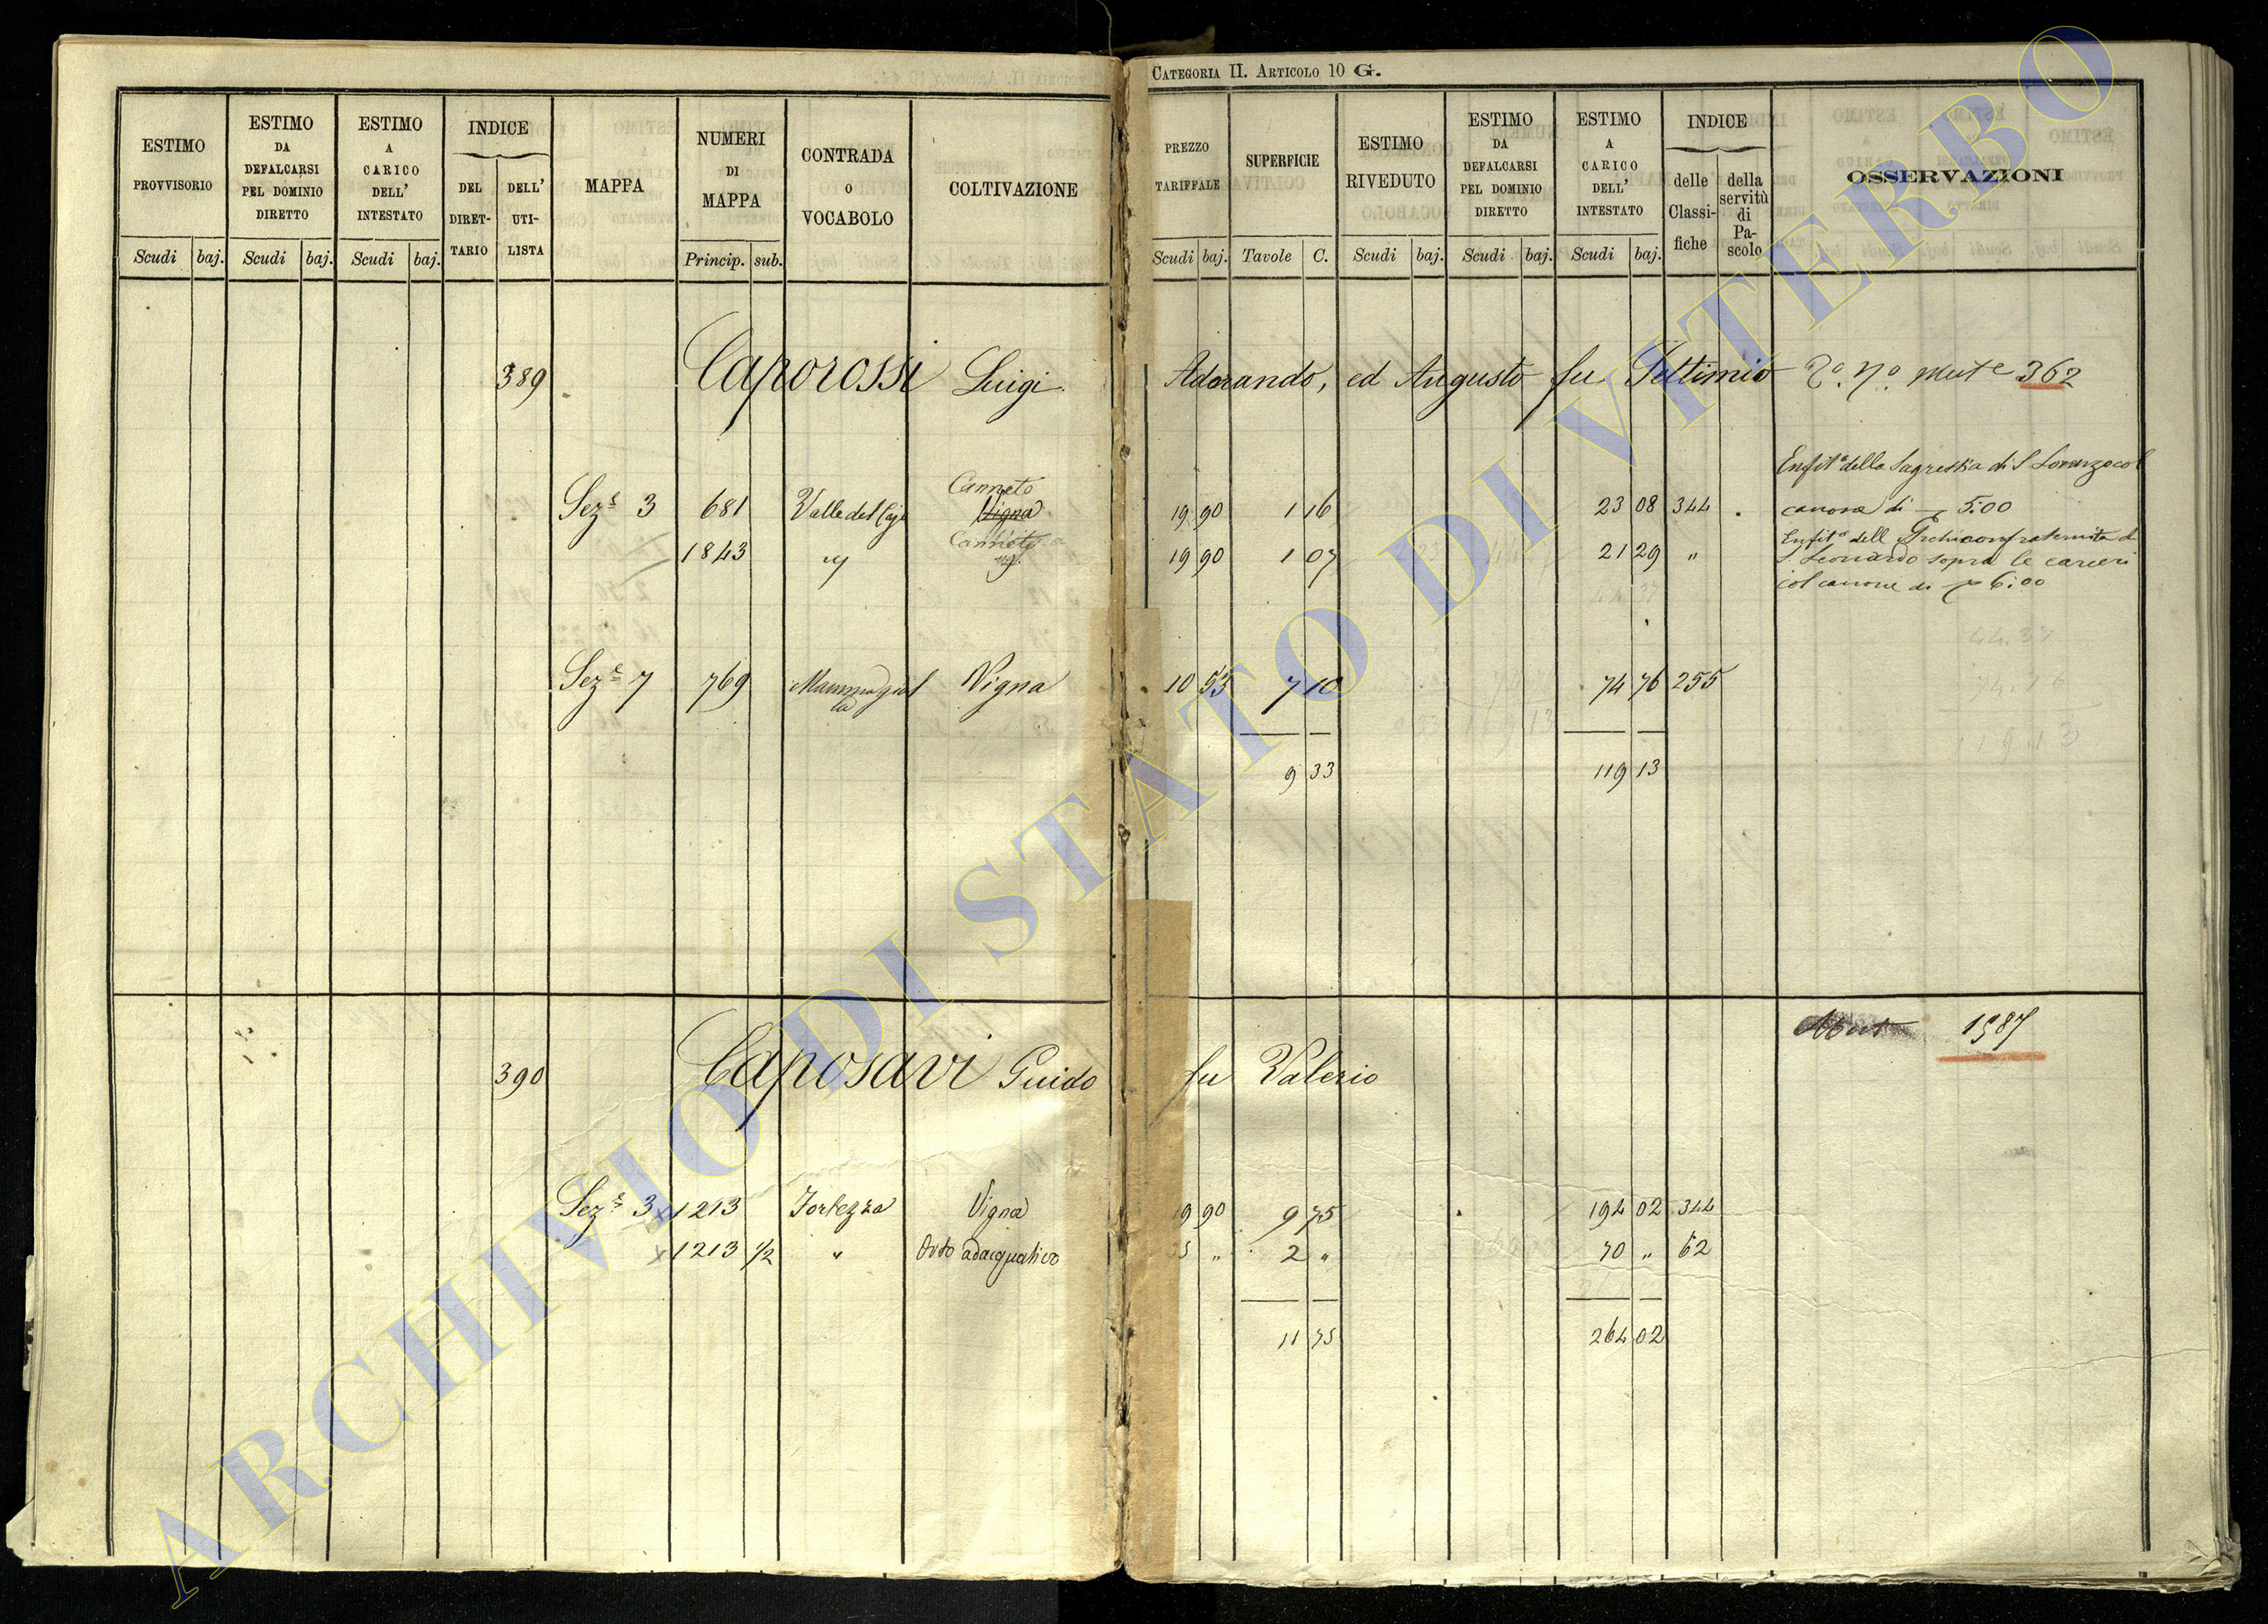 CATEGORIA II. ARTICOLO 10 G.
ESTIMO PROVVISORIO
ESTIMO DA DEFALCARSI PEL DOMINIO DIRETTO
ESTIMO A CARICO DELL' INTESTATO
INDICE
DEL DIRETTARIO
DELL' UTILISTA
MAPPA
NUMERI DI MAPPA
CONTRADA O VOCABOLO
COLTIVAZIONE
PREZZO TARIFFALE
SUPERFICIE
ESTIMO RIVEDUTO
ESTIMO DA DEFALCARSI PEL DOMINIO DIRETTO
ESTIMO A CARICO DELL' INTESTATO
INDICE
delle Classifiche
della servitù di Pascolo
OSSERVAZIONI
Scudi baj. Scudi baj. Scudi baj. Princip. sub. Scudi baj. Tavole C. Scudi baj. Scudi baj. Scudi baj.
389 Caporossi Luigi Adorando, ed Augusto fu Settimio 362
Enfit.ª della Sagrestia di S Lorenzo col
Canneto
Sez.e 3 681 Valle del Vigna 19 90 1 16 23 08 344 canone di 5:00
Canneto
Enfit.ª dell Archiconfraternita di
1843 " 19 90 1 07 21 29 " S. Leonardo sopra le carceri
col canone di 6:00
44.37
Sez.e 7 769 Mammagialla Vigna 10 53 7 10 74 76 255
9 33 119 13
Mut 1587
390 Caposavi Guido fu Valerio
Sez.e 3 1213 Fortezza Vigna 19 90 9 75 194 02 344
1213 1/2 " Orto adacquativo 35 " 2 " 70 " 62
11 75 264 02
ARCHIVIO DI STATO DI VITERBO